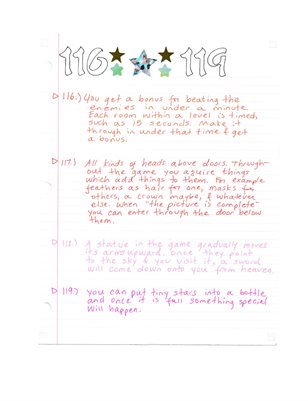 116 119
116.) You get a bonus for beating the
enemies in under a minute.
Each room within a level is timed,
such as 15 seconds. Make it
through in under that time & get
a bonus.
117.) All kinds of heads above doors. Through-
out the game you aquire things
which add things to them. For example
feathers as hair for one, masks for
others, a crown maybe, & whatever
else. When "the picture is complete"
you can enter through the door below
them.
118.) A statue in the game gradually moves
its arms upward. Once they point
to the sky & you visit it, a sword
will come down onto you from heaven.
119.) You can put tiny stars into a bottle
and once it is full something special
will happen.